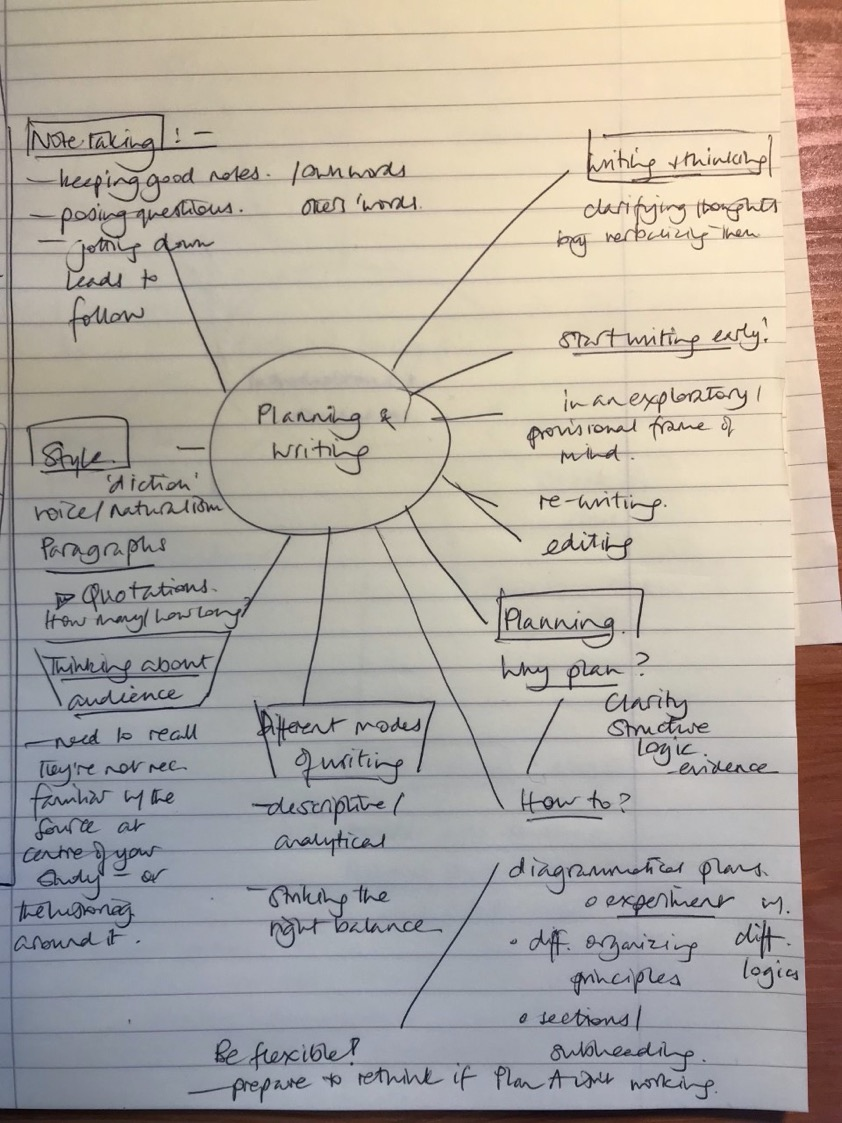 Note taking ! —
— keeping good notes. / own words
— posing questions. others' words.
— jotting down
leads to
follow
Writing + thinking
clarifying thoughts
by verbalizing them
Start writing early!
in an exploratory /
provisional frame of
mind.
re-writing.
editing
Planning &
Writing
Style.
'diction'
voice / naturalism
Paragraphs
Quotations.
How many / how long?
Thinking about
audience
— need to recall
They're not nec.
familiar w the
source at
centre of your
study — or
the
around it.
Different modes
of writing
— descriptive /
analytical
— Striking the
right balance
Planning.
Why plan?
Clarity
Structure
logic.
- evidence
How to?
diagrammatical plans.
o experiment w.
diff.
logics
• diff. organizing
principles
o sections /
subheading.
Be flexible!
— prepare to rethink if Plan A isn't working.